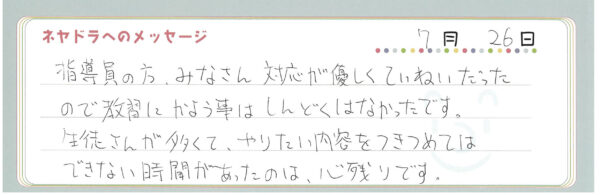 ネヤドラへのメッセージ 7月 26日
指導員の方、みなさん 対応が優しくていねいだった
ので教習に かよう事は しんどくはなかったです。
生徒さんが多くて、やりたい内容をつきつめては
できない時間があったのは、心残りです。